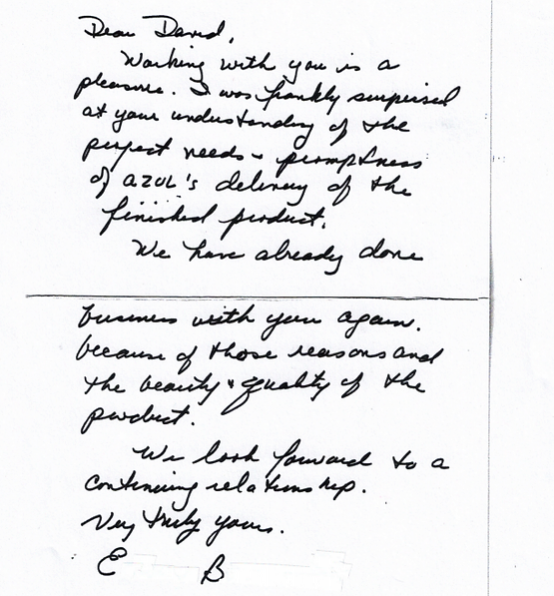 Dear David,
Working with you is a
pleasure. I was frankly surprised
at your understanding of the
project needs & promptness
of AZUL's delivery of the
finished product.
We have already done
business with you again.
because of those reasons and
the beauty & quality of the
product.
We look forward to a
continuing relationship.
Very truly yours.
E B